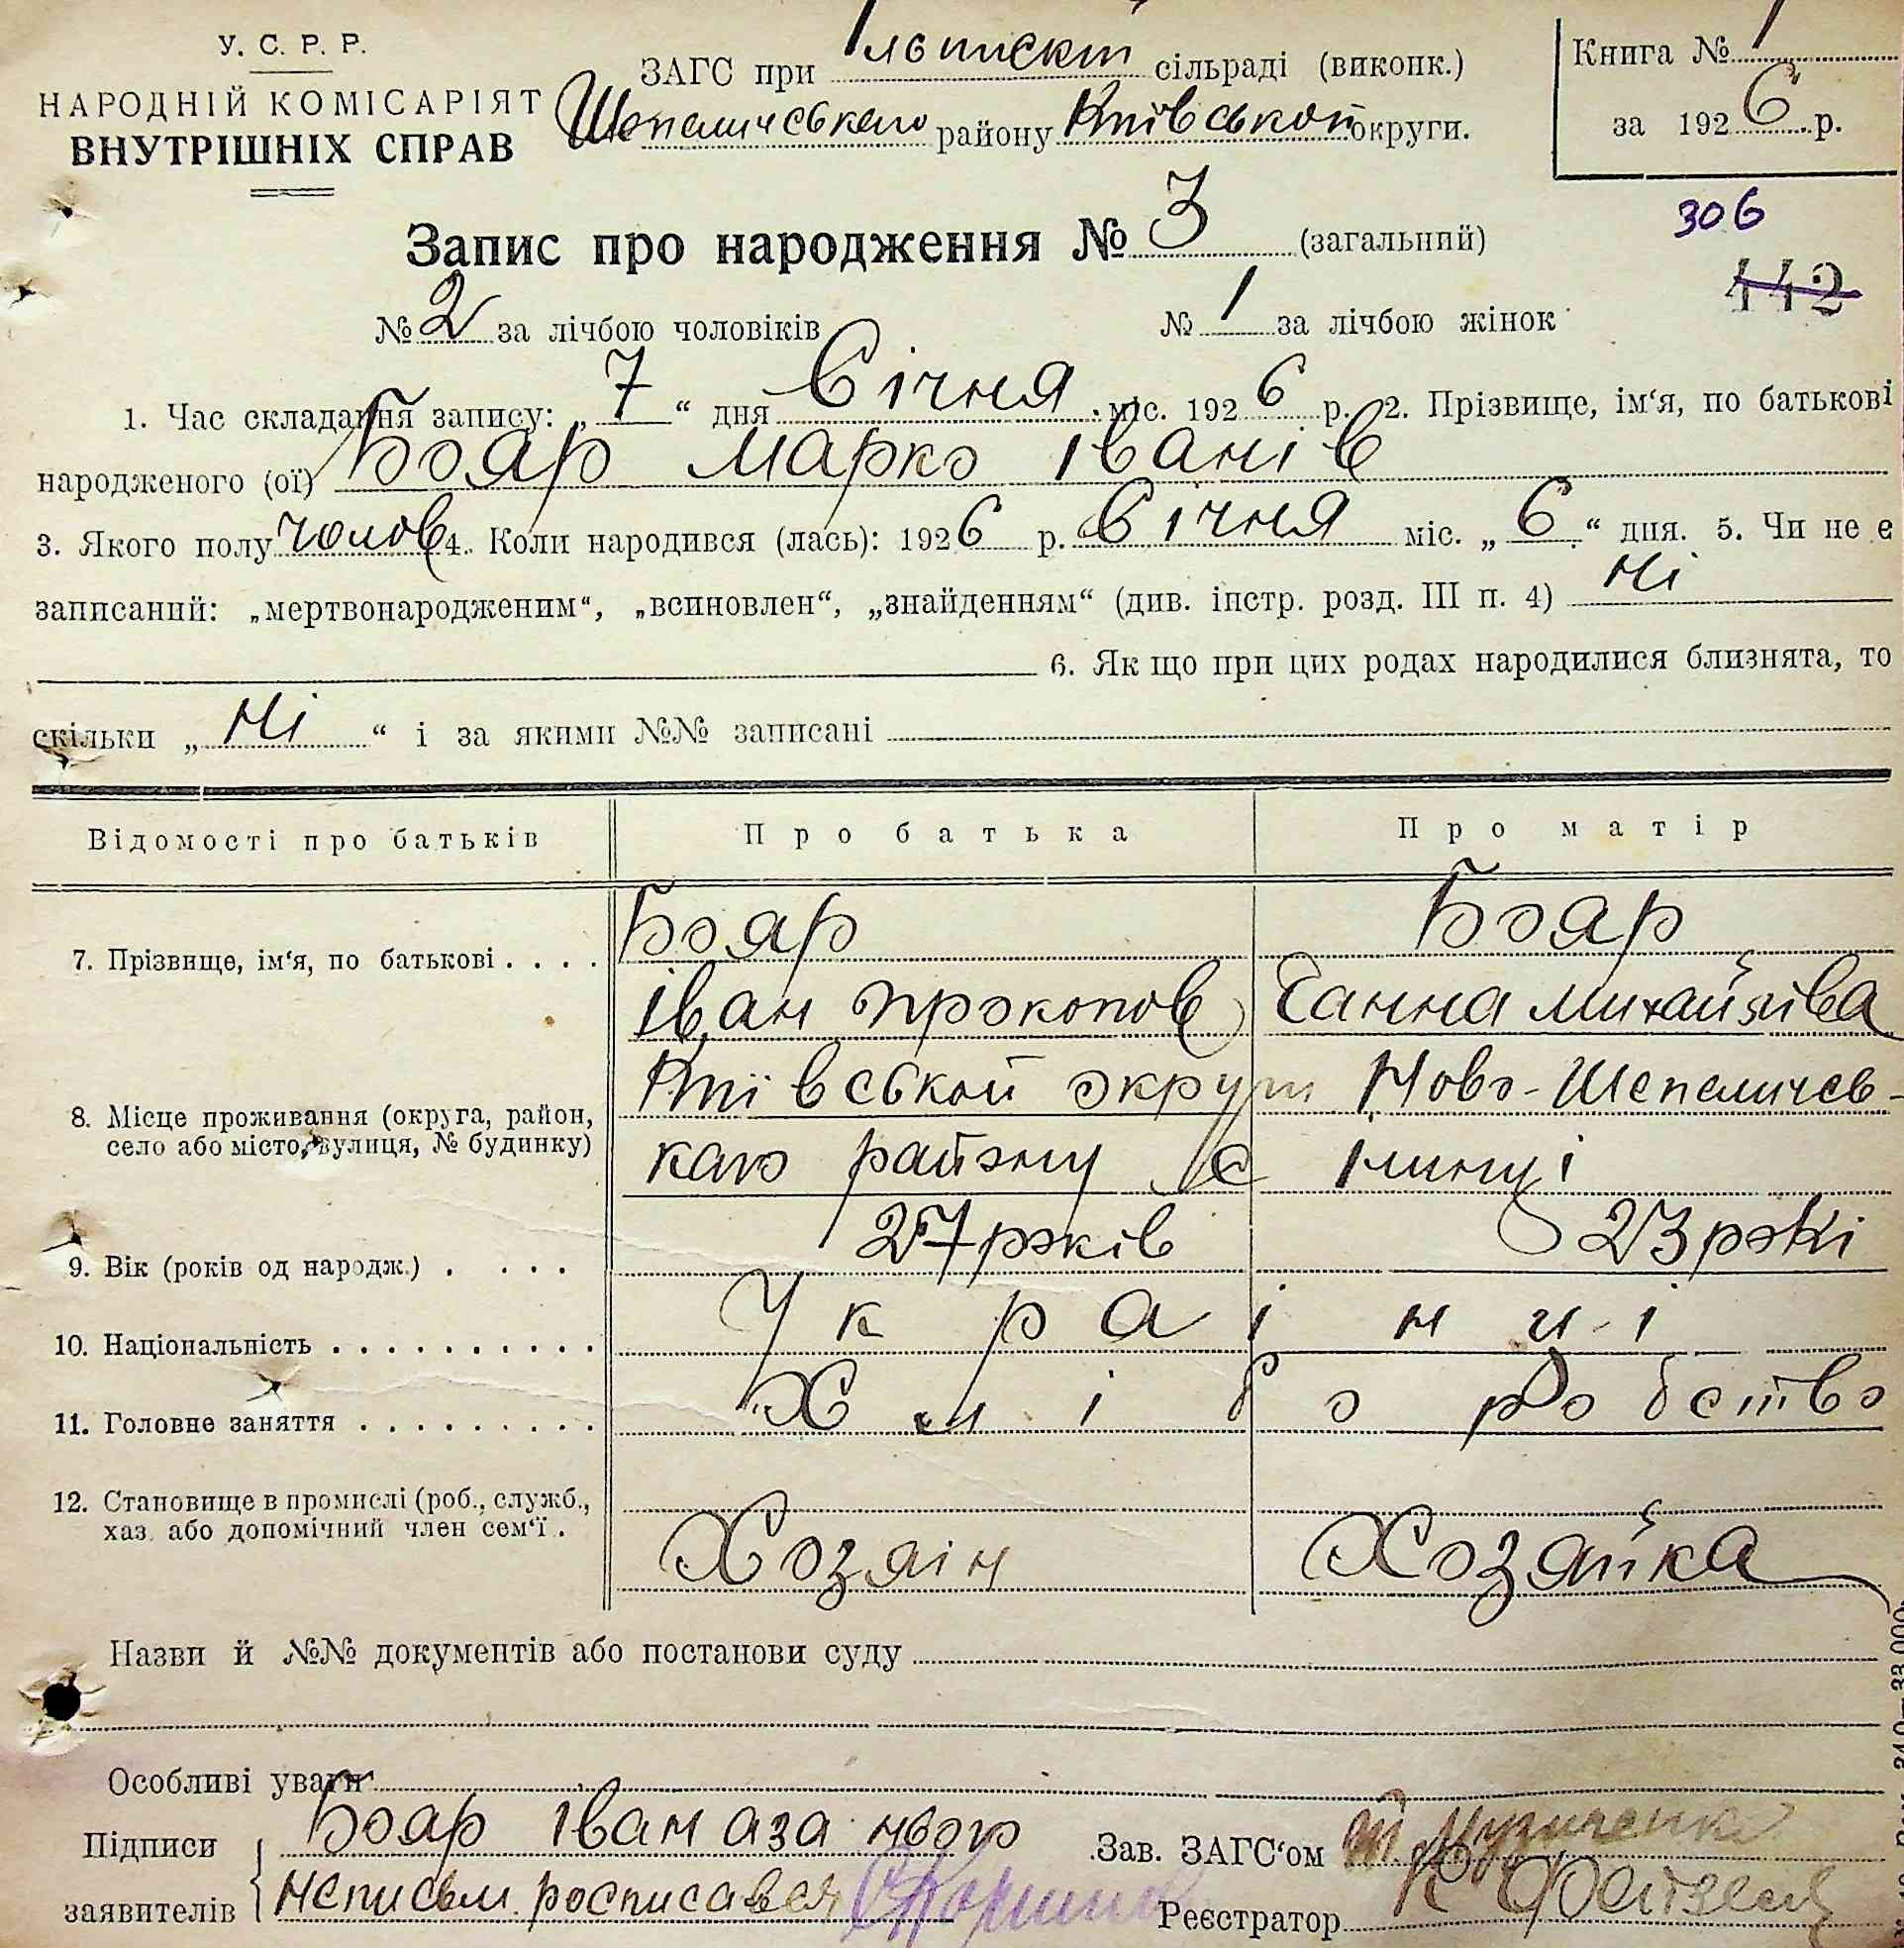 У. С. Р. Р.
НАРОДНІЙ КОМІСАРІЯТ
ВНУТРІШНІХ СПРАВ
ЗАГС при сільраді (виконк.)
Шепелического району Київської округи.
Книга № 1
за 1926 р.
306
442
Запис про народження № 3 (загальний)
№ 2 за лічбою чоловіків № 1 за лічбою жінок
1. Час складання запису: „7“ дня Січня міс. 1926 р. 2. Прізвище, ім‘я, по батькові
народженого (ої) Бояр Марко Іванів
3. Якого полу чолов 4. Коли народився (лась): 1926 р. Січня міс. „6“ дня. 5. Чи не є
записаний: „мертвонародженим“, „всиновлен“, „знайденням“ (див. інстр. розд. III п. 4) Ні
6. Як що при цих родах народилися близнята, то
скільки „Ні“ і за якими №№ записані
Відомості про батьків Про батька Про матір
7. Прізвище, ім‘я, по батькові . . . . Бояр Бояр
Іван Прокопов Ганна Михайлова
8. Місце проживання (округа, район, село або місто, вулиця, № будинку) Київської округи Ново-Шепеличсь-
кого району с Ілинці
9. Вік (років од народж.) . . . . 27 років 23 рокі
10. Національність . . . . . . . . . . Українці
11. Головне заняття . . . . . . . . . Хліборобство
12. Становище в промислі (роб., служб.,
хаз. або допомічний член сем‘ї . Хозяін Хозяйка
Назви й №№ документів або постанови суду
Особливі уваги
Підписи Бояр Іван а за нього Зав. ЗАГС‘ом
заявителів неписьм. росписався Реєстратор